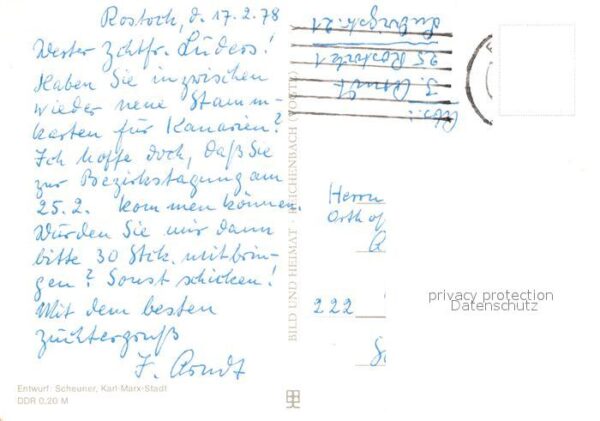 Rostock, d. 17.2.78
Werter Zchtfr. Lüders!
Haben Sie inzwischen
wieder neue Stamm-
karten für Kanarien?
Ich hoffe doch, daß Sie
zur Bezirkstagung am
25.2. kommen können.
Würden Sie mir dann
bitte 30 Stck. mitbrin-
gen? Sonst schicken!
Mit dem besten
Züchtergruß
J. Arndt
Entwurf: Scheuner, Karl-Marx-Stadt
DDR 0,20 M
BILD UND HEIMAT REICHENBACH (VOGTL)
Abs.:
J. Arndt
25 Rostock 1
21
Herrn
222
privacy protection
Datenschutz